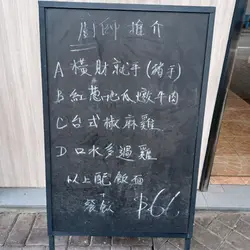 廚師推介
A 橫財就手(豬手)
B 紅葱吔瓜燉牛肉
C 台式椒麻雞
D 口水多過雞
以上配飯面
+
餐飲 $66